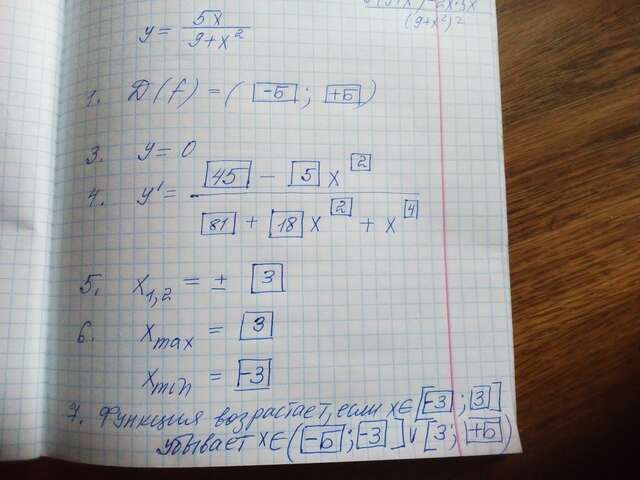 y = 5x / 9+x²
(9+x²)²
1. D(f) = ( -Б ; +Б )
3. y = 0
4. y' = 45 - 5 x² / 81 + 18 x² + x⁴
5. x₁,₂ = ± 3
6. x max = 3
x min = -3
7. Функция возрастает, если x∈[-3 ; 3]
убывает x∈(-Б ; -3] ∪ [3 ; +Б)